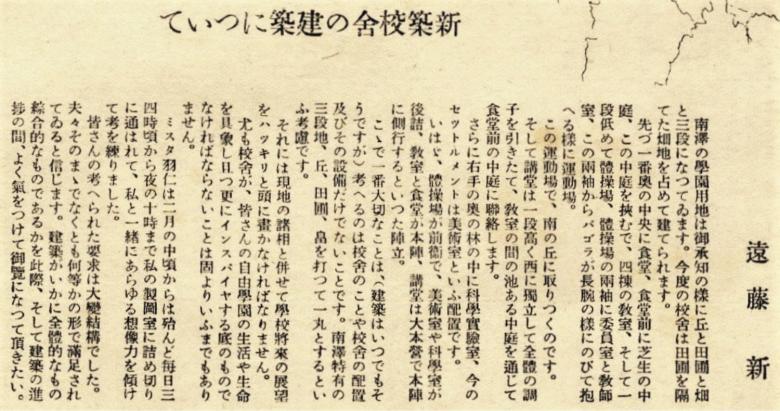 新築校舍の建築について
遠藤新
南澤の學園用地は御承知の樣に丘と田圃と畑
と三段になつてゐます。今度の校舍は田圃を隔
てた畑地を占めて建てられます。
先づ一番奥の中央に食堂、食堂前に芝生の中
庭、この中庭を挾むで、四棟の教室、そして一
段低めて體操場、體操場の兩袖に委員室と教師
室、この兩袖からパゴラが長腕の樣にのびて抱
へる樣に運動場。
この運動場で、南の丘に取りつくのです。
そして講堂は一段高く西に獨立して全體の調
子を引きたて、教室の間の池ある中庭を通じて
食堂前の中庭に聯絡します。
さらに右手の奥の林の中に科學實驗室、今の
セツトルメントは美術室といふ配置です。
いはゞ、體操場が前衞で、美術室や科學室が
後詰、教室と食堂が本陣、講堂は大本營で本陣
に側行するといつた陣立。
こゝで一番大切なことは、(建築はいつでもそ
うですが)考へるのは校舍のことや校舍の配置
及びその設備だけでないことです。南澤特有の
三段地、丘、田圃、畠を打つて一丸とするとい
ふ考慮です。
それには現地の諸相と併せて學校將來の展望
をハツキリと頭に畫かなければなりません。
尤も校舍が、皆さんの自由學園の生活や生命
を具象し且つ更にインスパイヤする底のもので
なければならないことは固よりいふまでもあり
ません。
ミスタ羽仁は二月の中頃からは殆んど毎日三
四時頃から夜の十時まで私の製圖室に詰め切り
に通はれて、私と一緒にあらゆる想像力を傾け
て考を練りました。
皆さんの考へられた要求は大變結構でした。
夫々そのまゝでなくとも何等かの形で滿足され
てゐると信じます。建築がいかに全體的なもの
綜合的なものであるかを此際、そして建築の進
捗の間、よく氣をつけて御覽になつて頂きたい。